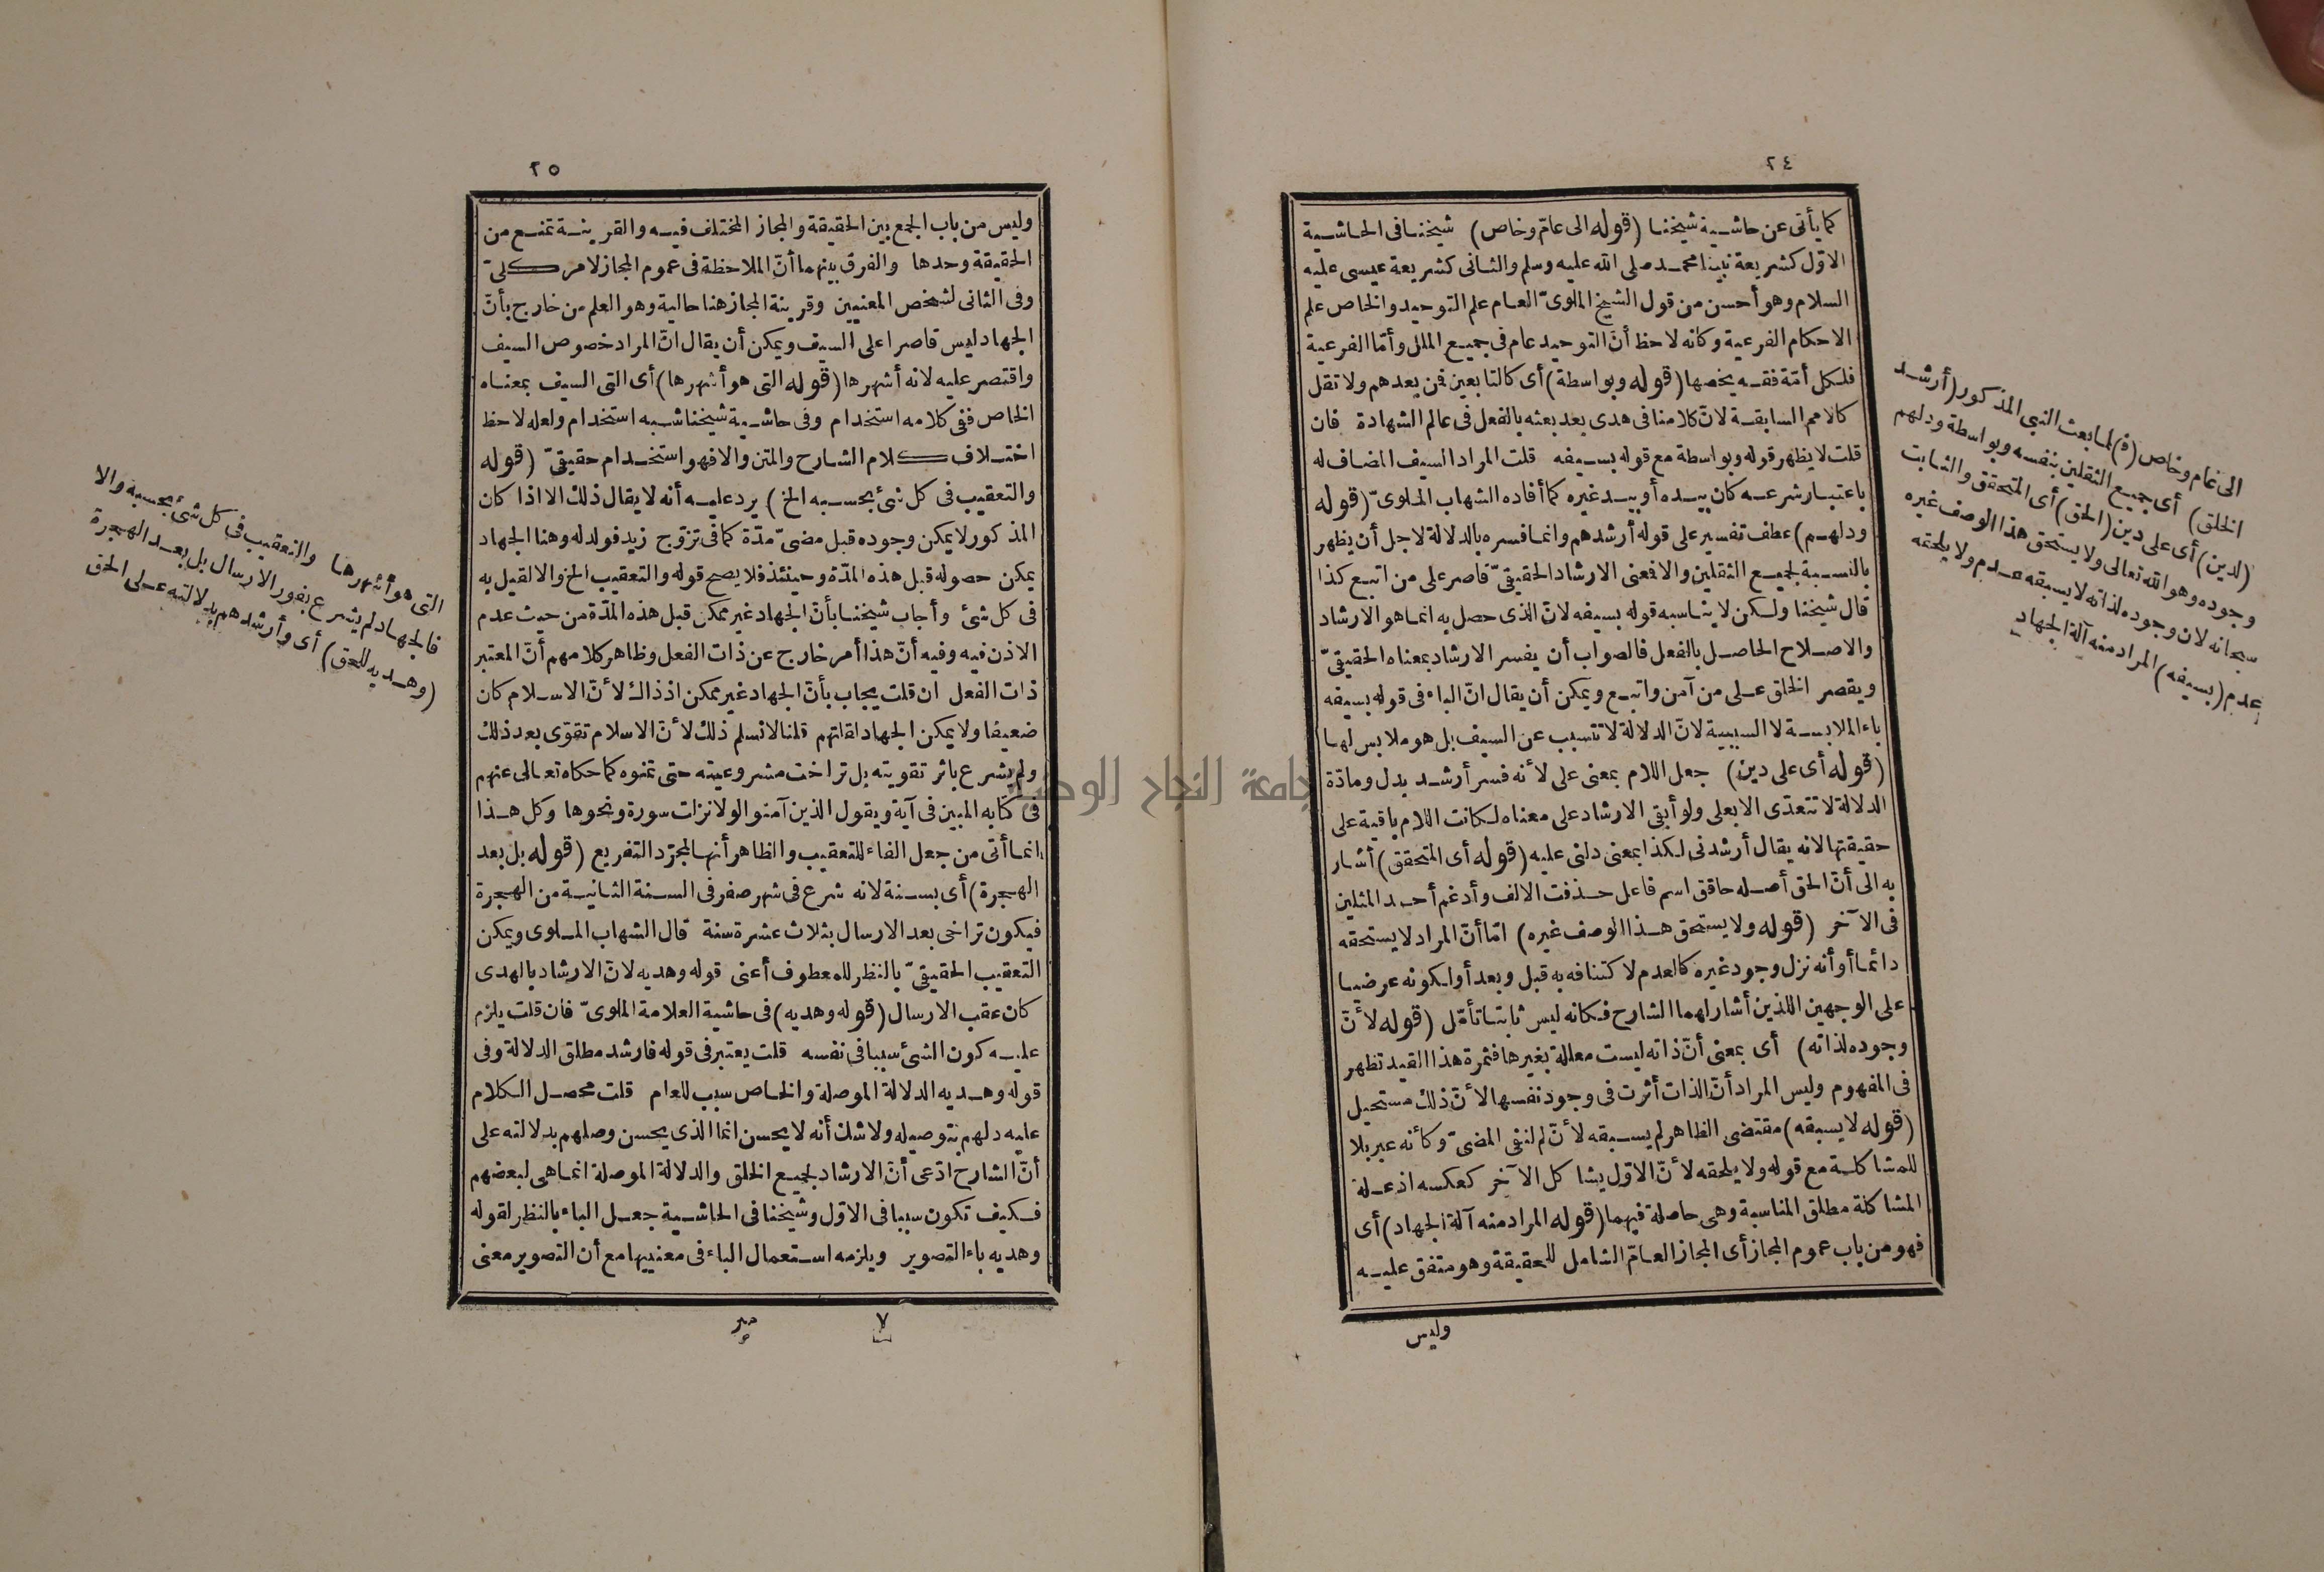 ٢٤
كما يأتى عن حاشية شيخنا (قوله الى عامّ وخاص) شيخنا فى الحاشية
الاوّل كشريعة نبينا محمد صلى الله عليه وسلم والثانى كشريعة عيسى عليه
السلام وهو أحسن من قول الشيخ الملوىّ العام علم التوحيد والخاص علم
الاحكام الفرعية وكانه لاحظ أنّ التوحيد عام فى جميع الملل وأمّا الفرعية
فلكل أمّة فقه يخصها (قوله وبواسطة) أى كالتابعين فمن بعدهم ولا تقل
كالامم السابقة لانّ كلامنا فى هدى بعد بعثه بالفعل فى عالم الشهادة فان
قلت لا يظهر قوله وبواسطة مع قوله بسيفه قلت المراد السيف المضاف له
باعتبار شرعه كان بيده أو بيد غيره كما أفاده الشهاب الملوىّ (قوله
ودلهم) عطف تفسير على قوله أرشدهم وانما فسره بالدلالة لاجل أن يظهر
بالنسبة لجميع الثقلين والا فمعنى الارشاد الحقيقىّ قاصر على من اتبع كذا
قال شيخنا ولكن لا يناسبه قوله بسيفه لانّ الذى حصل به انما هو الارشاد
والاصلاح الحاصل بالفعل فالصواب أن يفسر الارشاد بمعناه الحقيقىّ
ويقصر الخلق على من آمن واتبع ويمكن أن يقال انّ الباء فى قوله بسيفه
باء الملابسة لا السببية لانّ الدلالة لا تتسبب عن السيف بل هو ملابس لها
(قوله أى على دين) جعل اللام بمعنى على لأنه فسر أرشد بدل ومادّة
الدلالة لا تتعدّى الا بعلى ولو أبقى الارشاد على معناه لكانت اللام باقية على
حقيقتها لانه يقال أرشدنى لكذا بمعنى دلنى عليه (قوله أى المتحقق) أشار
به الى أنّ الحق أصله حاقق اسم فاعل حذفت الالف وأدغم أحد المثلين
فى الآخر (قوله ولا يستحق هذا الوصف غيره) امّا أنّ المراد لا يستحقه
دائما أو أنه نزل وجود غيره كالعدم لاكتنافه به قبل وبعد أو لكونه عرضيا
على الوجهين اللذين أشار لهما الشارح فكانه ليس ثابتا تأمّل (قوله لأنّ
وجوده لذاته) أى بمعنى أنّ ذاته ليست معللة بغيرها فثمرة هذا القيد تظهر
فى المفهوم وليس المراد أنّ الذات أثرت فى وجود نفسها لأنّ ذلك مستحيل
(قوله لا يسبقه) مقتضى الظاهر لم يسبقه لأنّ لم لنفى المضىّ وكأنه عبر بلا
للمشاكلة مع قوله ولا يلحقه لأنّ الاوّل يشاكل الآخر كعكسه اذ علة
المشاكلة مطلق المناسبة وهى حاصلة فيهما (قوله المراد منه آلة الجهاد) أى
فهو من باب عموم المجاز أى المجاز العامّ الشامل للحقيقة وهو متفق عليه
وليس
الى عام وخاص (ف) لما بعث النبى المذكور (أرشد
الخلق) أى جميع الثقلين بنفسه وبواسطة ودلهم
(لدين) أى على دين (الحق) أى المتحقق والثابت
وجوده وهو الله تعالى ولا يستحق هذا الوصف غيره
سبحانه لان وجوده لذاته لا يسبقه عدم ولا يلحقه
عدم (بسيفه) المراد منه آلة الجهاد
٢٥
وليس من باب الجمع بين الحقيقة والمجاز المختلف فيه والقرينة تمنع من
الحقيقة وحدها والفرق بينهما أنّ الملاحظة فى عموم المجاز لامر كلىّ
وفى الثانى لشخص المعنيين وقرينة المجاز هنا حالية وهو العلم من خارج بأنّ
الجهاد ليس قاصرا على السيف ويمكن أن يقال انّ المراد خصوص السيف
واقتصر عليه لانه أشهرها (قوله التى هو أشهرها) أى التى السيف بمعناه
الخاص ففى كلامه استخدام وفى حاشية شيخنا شبه استخدام ولعله لاحظ
اختلاف كلام الشارح والمتن والا فهو استخدام حقيقىّ (قوله
والتعقيب فى كل شئ بحسبه الخ) يرد عليه أنه لا يقال ذلك الا اذا كان
المذكور لا يمكن وجوده قبل مضىّ مدّة كما فى تزوّج زيد فولد له وهنا الجهاد
يمكن حصوله قبل هذه المدّة وحينئذ فلا يصح قوله والتعقيب الخ والا لقيل به
فى كل شئ وأجاب شيخنا بأنّ الجهاد غير ممكن قبل هذه المدّة من حيث عدم
الاذن فيه وفيه أنّ هذا أمر خارج عن ذات الفعل وظاهر كلامهم أنّ المعتبر
ذات الفعل ان قلت يجاب بأنّ الجهاد غير ممكن اذ ذاك لأنّ الاسلام كان
ضعيفا ولا يمكن الجهاد لقلتهم قلنا لا نسلم ذلك لأنّ الاسلام تقوّى بعد ذلك
ولم يشرع باثر تقويته بل تراخت مشروعيته حتى تمنوه كما حكاه تعالى عنهم
فى كتابه المبين فى آية ويقول الذين آمنوا لولا نزلت سورة ونحوها وكل هذا
انما أتى من جعل الفاء للتعقيب والظاهر أنها لمجرّد التفريع (قوله بل بعد
الهجرة) أى بسنة لانه شرع فى شهر صفر فى السنة الثانية من الهجرة
فيكون تراخى بعد الارسال بثلاث عشرة سنة قال الشهاب الملوى ويمكن
التعقيب الحقيقىّ بالنظر للمعطوف أعنى قوله وهديه لانّ الارشاد بالهدى
كان عقب الارسال (قوله وهديه) فى حاشية العلامة الملوىّ فان قلت يلزم
عليه كون الشئ سببا فى نفسه قلت يعتبر فى قوله فارشد مطلق الدلالة وفى
قوله وهديه الدلالة الموصلة والخاص سبب للعام قلت محصل الكلام
عليه دلهم بتوصيله ولا شك أنه لا يحسن انما الذى يحسن وصلهم بدلالته على
أنّ الشارح ادّعى أنّ الارشاد لجميع الخلق والدلالة الموصلة انما هى لبعضهم
فكيف تكون سببا فى الاوّل وشيخنا فى الحاشية جعل الباء بالنظر لقوله
وهديه باء التصوير ويلزمه استعمال الباء فى معنييها مع أن التصوير معنى
٧ مير
التى هو أشهرها والتعقيب فى كل شئ بحسبه والا
فالجهاد لم يشرع بفور الارسال بل بعد الهجرة
(وهديه للحق) أى وأرشدهم بدلالته على الحق
جامعة النجاح الوطنية